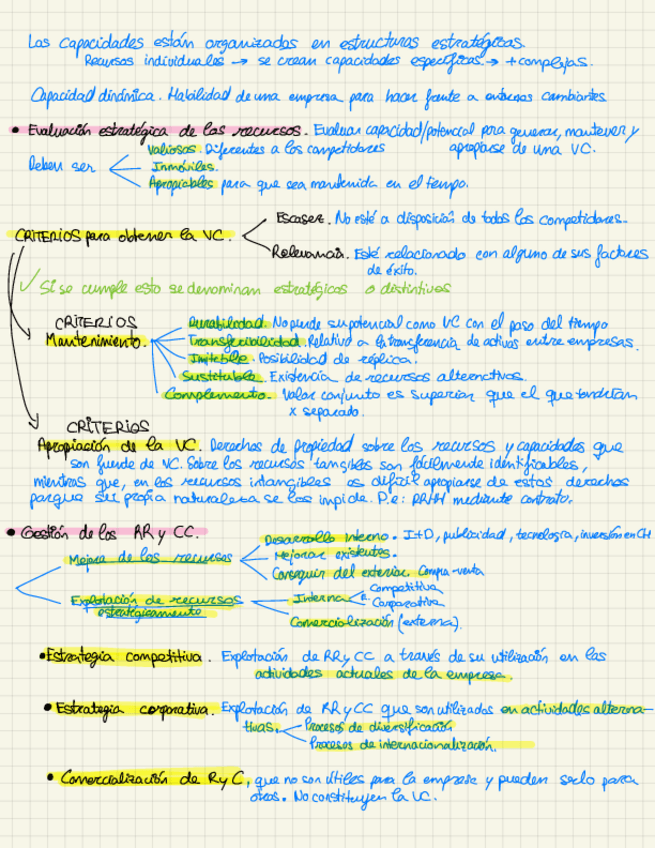 Las capacidades están organizadas en estructuras estratégicas.
Recursos individuales → se crean capacidades específicas → + complejas.
Capacidad dinámica. Habilidad de una empresa para hacer frente a entornos cambiantes
• Evaluación estratégica de los recursos. Evaluar capacidad/potencial para generar, mantener y
apropiarse de una VC.
Deben ser
Valiosos. Diferentes a los competidores
Inmóviles.
Apropiables para que sea mantenida en el tiempo.
CRITERIOS para obtener la VC.
Escasez. No esté a disposición de todos los competidores.
Relevancia. Esté relacionado con alguno de sus factores
de éxito.
✓ Si se cumple esto se denominan estratégicos o distintivos
CRITERIOS
Mantenimiento.
Durabilidad. No pierde su potencial como VC con el paso del tiempo
Transferibilidad. Relativo a la transferencia de activos entre empresas.
Imitable. Posibilidad de réplica.
Sustituible. Existencia de recursos alternativos.
Complemento. Valor conjunto es superior que el que tendrían
x separado.
CRITERIOS
Apropiación de la VC. Derechos de propiedad sobre los recursos y capacidades que
son fuente de VC. Sobre los recursos tangibles son fácilmente identificables,
mientras que, en los recursos intangibles es difícil apropiarse de estos derechos
porque su propia naturaleza se los impide. P.e: RRHH mediante contrato.
• Gestión de los RR y CC.
Mejora de los recursos
Desarrollo interno. I+D, publicidad, tecnología, inversión en CH
Mejorar existentes.
Conseguir del exterior. Compra-venta
Explotación de recursos
estratégicamente
Interna
Competitiva
Corporativa
Comercialización (externa).
• Estrategia competitiva. Explotación de RR y CC a través de su utilización en las
actividades actuales de la empresa.
• Estrategia corporativa. Explotación de RR y CC que son utilizados en actividades alterna-
tivas.
Procesos de diversificación
Procesos de internacionalización.
• Comercialización de R y C, que no son útiles para la empresa y pueden serlo para
otras. No constituyen la VC.